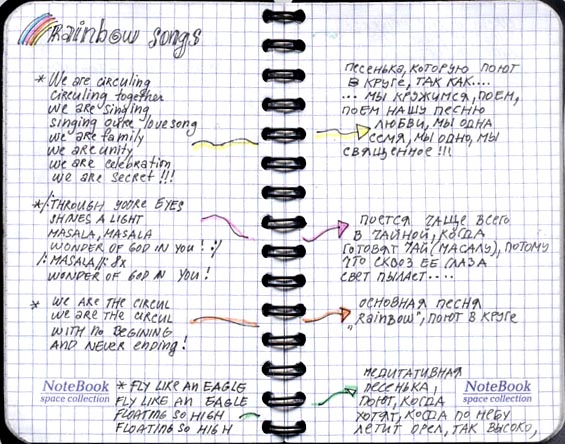 Rainbow songs
* We are circuling
circuling together
we are singing
singing oure lovesong
we are family
we are unity
we are celebration
we are secret !!!
*/: THROUGH YOORE EYES
SHINES A LIGHT
MASALA, MASALA
WONDER OF GOD IN YOU! :/
/: MASALA /: 8x
WONDER OF GOD IN YOU!
* WE ARE THE CIRCUL
WE ARE THE CIRCUL
WITH NO BEGINING
AND NEVER ENDING!
NoteBook
space collection
* FLY LIKE AN EAGLE
FLY LIKE AN EAGLE
FLOATING SO HIGH
FLOATING SO HIGH
ПЕСЕНЬКА, КОТОРУЮ ПОЮТ
В КРУГЕ, ТАК КАК....
... МЫ КРУЖИМСЯ, ПОЕМ,
ПОЕМ НАШУ ПЕСНЮ
ЛЮБВИ, МЫ ОДНА
СЕМЯ, МЫ ОДНО, МЫ
СВЯЩЕННОЕ !!!
ПОЕТСЯ ЧАЩЕ ВСЕГО
В ЧАЙНОЙ, КОГДА
ГОТОВЯТ ЧАЙ (МАСАЛУ), ПОТОМУ
ЧТО СКВОЗ ЕЕ ГЛАЗА
СВЕТ ПЫЛАЕТ....
ОСНОВНАЯ ПЕСНЯ
„RAINBOW", ПОЮТ В КРУГЕ
МЕДИТАТИВНАЯ
ПЕСЕНЬКА,
ПОЮТ, КОГДА
ХОТЯТ, КОГДА ПО НЕБУ
ЛЕТИТ ОРЕЛ, ТАК ВЫСОКО,
NoteBook
space collection